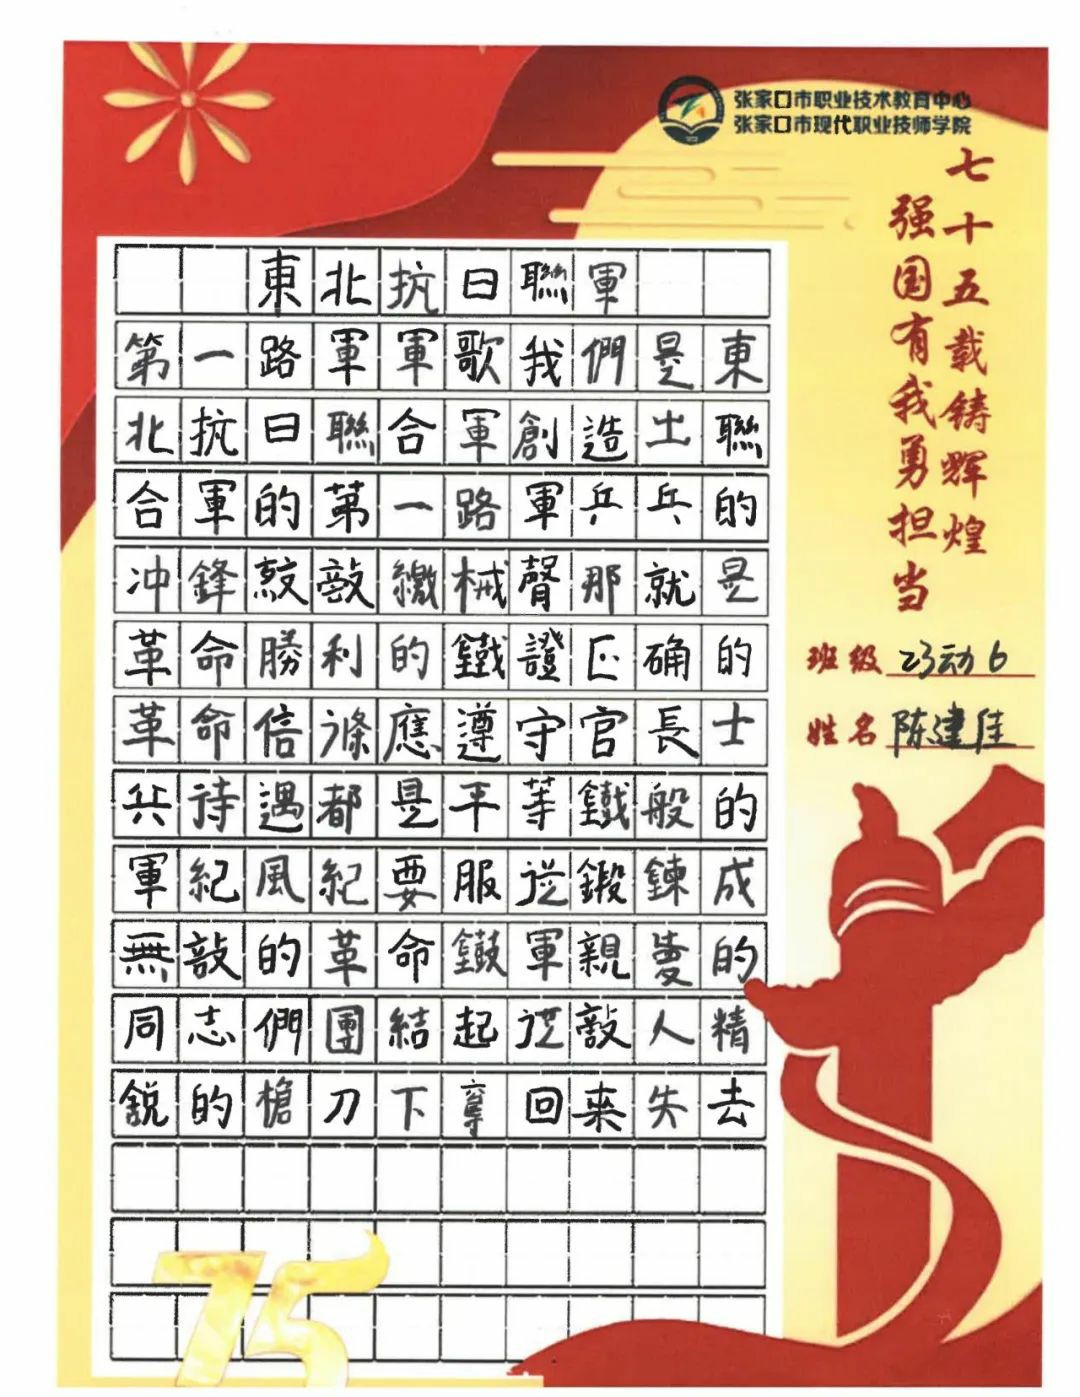 张家口市职业技术教育中心
张家口市现代职业技师学院
七十五载铸辉煌
强国有我勇担当
班级 23动6
姓名 陈建佳
東北抗日聯軍
第一路軍軍歌我們是東
北抗日聯合軍創造出聯
合軍的第一路軍乒乓的
冲鋒殺敵繳械聲那就是
革命勝利的鐵證正确的
革命信條應遵守官長士
兵待遇都是平等鐵般的
軍紀風紀要服從鍛鍊成
無敵的革命鐵軍親愛的
同志們團結起從敵人精
銳的槍刀下奪回來失去
75